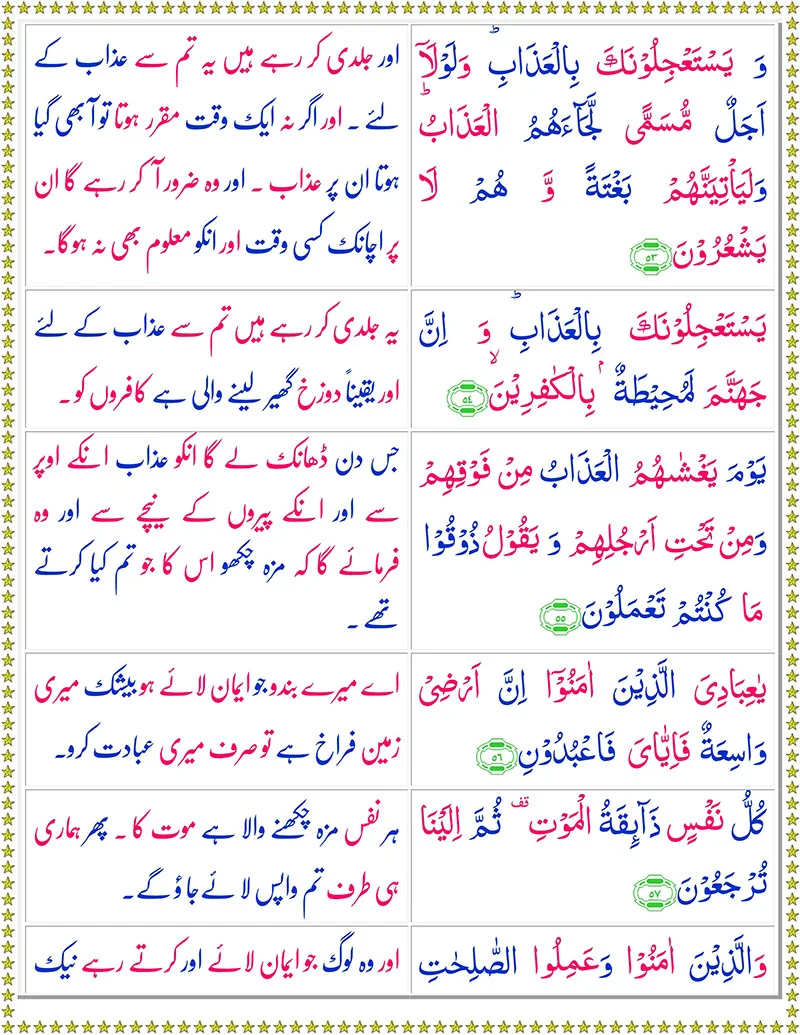 وَ يَسْتَعْجِلُوْنَكَ بِالْعَذَابِ ؕ وَلَوْلَاۤ
اَجَلٌ مُّسَمًّى لَّجَآءَهُمُ الْعَذَابُ ؕ
وَلَيَاْتِيَنَّهُمْ بَغْتَةً وَّ هُمْ لَا
يَشْعُرُوْنَ ٥٣
اور جلدی کر رہے ہیں یہ تم سے عذاب کے
لئے ۔ اور اگر نہ ایک وقت مقرر ہوتا تو آ بھی گیا
ہوتا ان پر عذاب ۔ اور وہ ضرور آ کر رہے گا ان
پر اچانک کسی وقت اور انکو معلوم بھی نہ ہوگا۔
يَسْتَعْجِلُوْنَكَ بِالْعَذَابِ ؕ وَ اِنَّ
جَهَنَّمَ لَمُحِيْطَةٌۢ بِالْكٰفِرِيْنَ ۙ ٥٤
یہ جلدی کر رہے ہیں تم سے عذاب کے لئے
اور یقیناً دوزخ گھیر لینے والی ہے کافروں کو ۔
يَوْمَ يَغْشٰىهُمُ الْعَذَابُ مِنْ فَوْقِهِمْ
وَمِنْ تَحْتِ اَرْجُلِهِمْ وَ يَقُوْلُ ذُوْقُوْا
مَا كُنْتُمْ تَعْمَلُوْنَ ٥٥
جس دن ڈھانک لے گا انکو عذاب انکے اوپر
سے اور انکے پیروں کے نیچے سے اور وہ
فرمائے گا کہ مزہ چکھو اس کا جو تم کیا کرتے
تھے ۔
يٰعِبَادِىَ الَّذِيْنَ اٰمَنُوْۤا اِنَّ اَرْضِىْ
وَاسِعَةٌ فَاِيَّاىَ فَاعْبُدُوْنِ ٥٦
اے میرے بندو جو ایمان لائے ہو بیشک میری
زمین فراخ ہے تو صرف میری عبادت کرو۔
كُلُّ نَفْسٍ ذَآئِقَةُ الْمَوْتِ ۖ ثُمَّ اِلَيْنَا
تُرْجَعُوْنَ ٥٧
ہر نفس مزہ چکھنے والا ہے موت کا ۔ پھر ہماری
ہی طرف تم واپس لائے جاؤ گے۔
وَالَّذِيْنَ اٰمَنُوْا وَعَمِلُوا الصّٰلِحٰتِ
اور وہ لوگ جو ایمان لائے اور کرتے رہے نیک